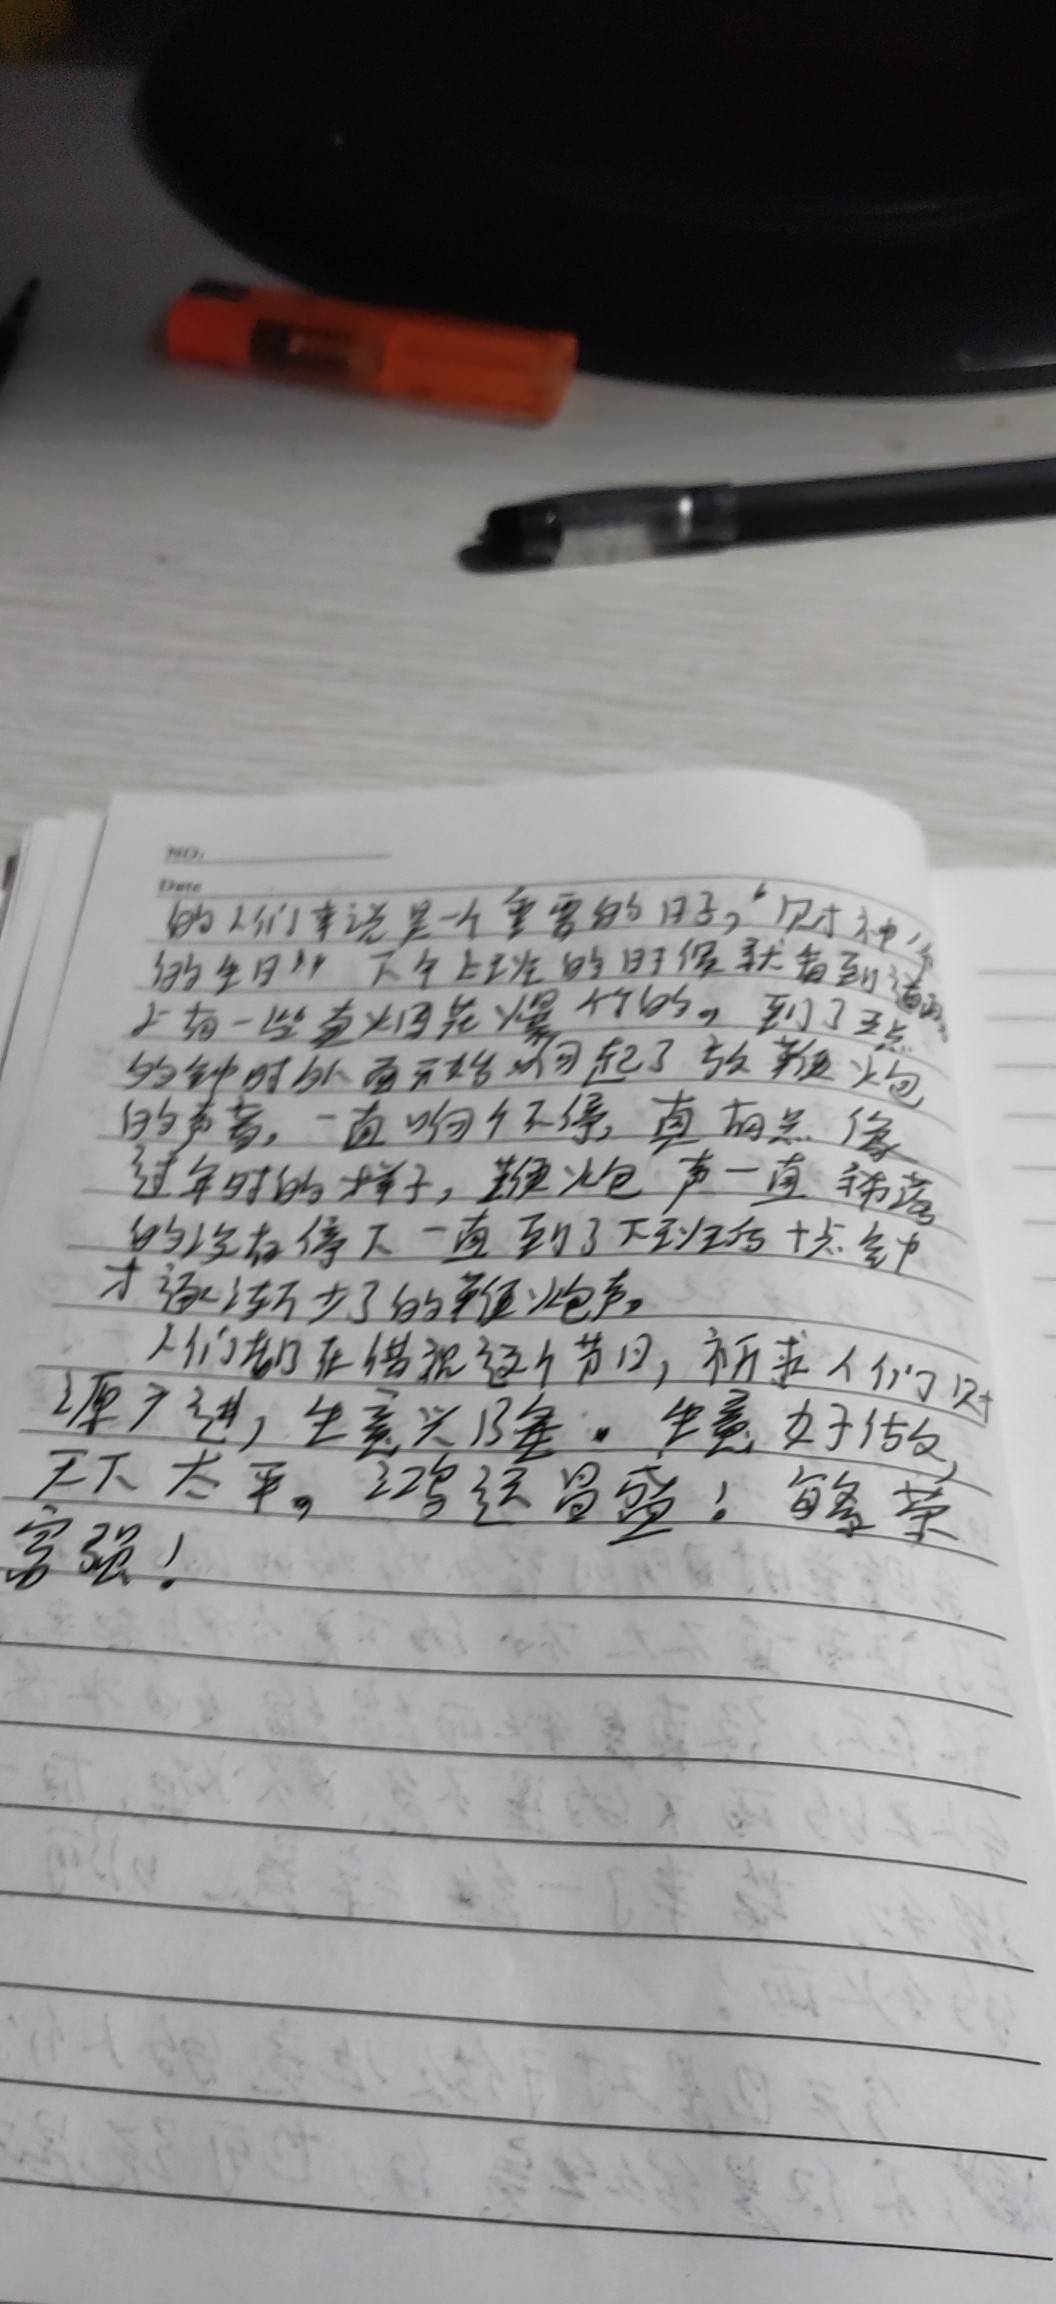 NO:
Date
的人们来说是一个重要的日子，“财神爷
的生日” 下午上班的时候就看到道路
上有一些卖烟花爆竹的。到了五点
的钟时外面开始响起了放鞭炮
的声音，一直响个不停，真有点像
过年时的样子，鞭炮声一直
的没有停下一直到了下班后十点钟
才逐渐少了的鞭炮声。
人们都在借祝这个节日，祈求人们财
源广进，生意兴隆。生意好做，
天下太平。鸿运昌盛！繁荣
富强！